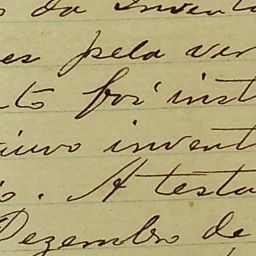 da Invent
es pela ver
to foi inst
iuvo invent
o. A testa
Dezembro de